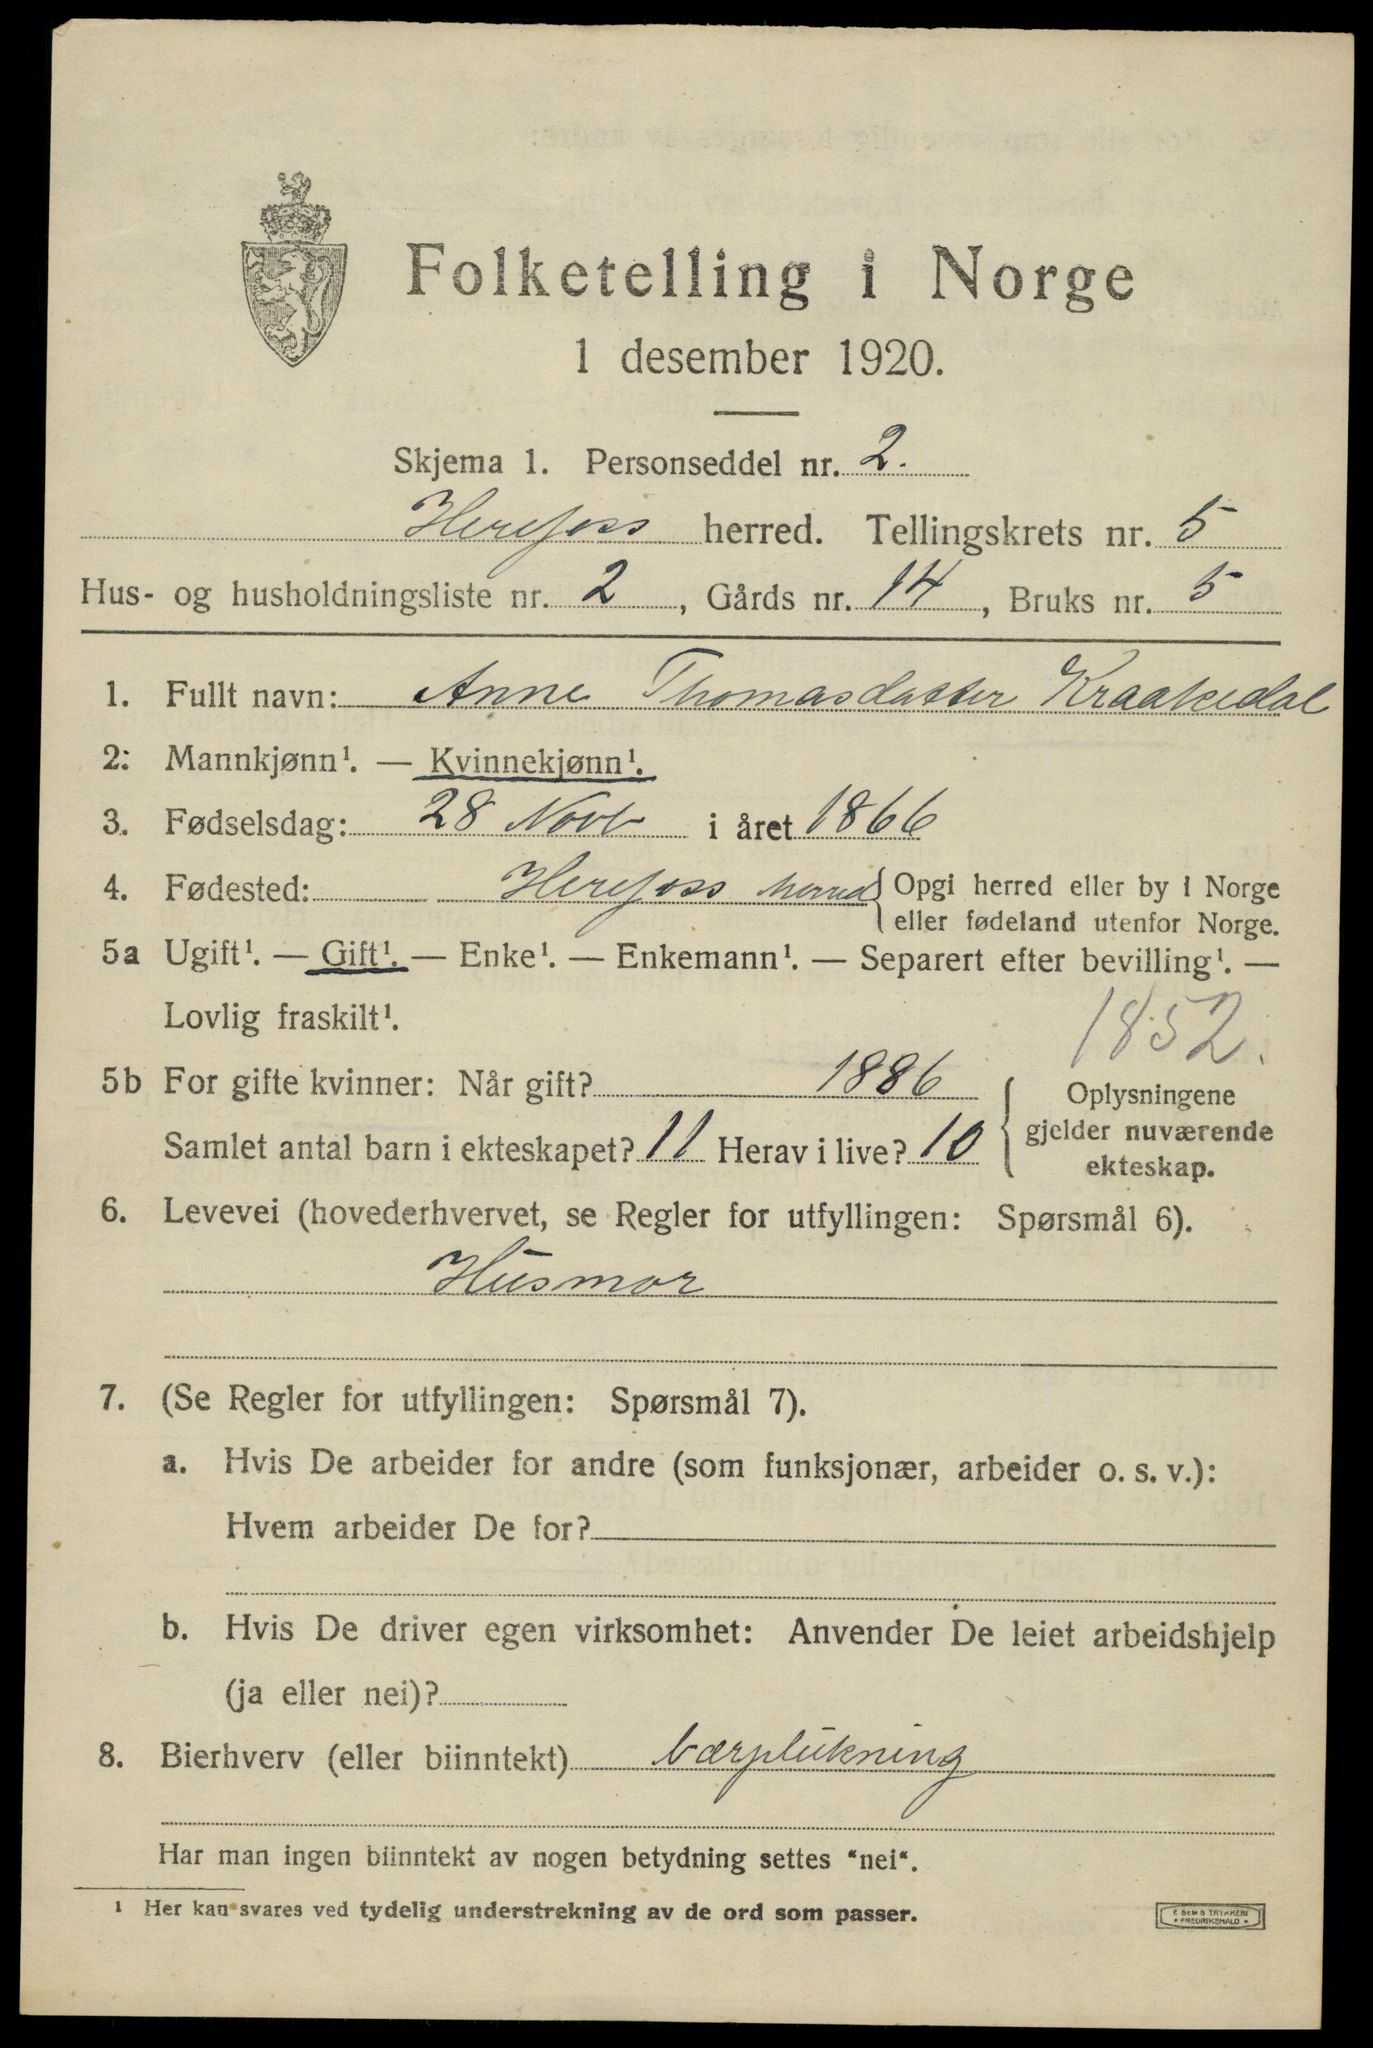 Folketelling i Norge
1 desember 1920.
Skjema 1. Personseddel nr. 2.
Herefoss herred. Tellingskrets nr. 5
Hus- og husholdningsliste nr. 2, Gårds nr. 14, Bruks nr. 5
1. Fullt navn: Anne Thomasdatter Kraakedal
2: Mannkjønn¹. — Kvinnekjønn¹.
3. Fødselsdag: 28 Novb i året 1866
4. Fødested: Herefoss herred { Opgi herred eller by i Norge
eller fødeland utenfor Norge.
5a Ugift¹. — Gift¹. — Enke¹. — Enkemann¹. — Separert efter bevilling¹. —
Lovlig fraskilt¹.
1852.
5b For gifte kvinner: Når gift? 1886
Samlet antal barn i ekteskapet? 11 Herav i live? 10
{ Oplysningene
gjelder nuværende
ekteskap.
6. Levevei (hovederhvervet, se Regler for utfyllingen: Spørsmål 6).
Husmor
7. (Se Regler for utfyllingen: Spørsmål 7).
a. Hvis De arbeider for andre (som funksjonær, arbeider o. s. v.):
Hvem arbeider De for?
b. Hvis De driver egen virksomhet: Anvender De leiet arbeidshjelp
(ja eller nei)?
8. Bierhverv (eller biinntekt) bærplukning
Har man ingen biinntekt av nogen betydning settes "nei".
¹ Her kan svares ved tydelig understrekning av de ord som passer.
E SEMS TRYKKERI
• FREDRIKSHALD •